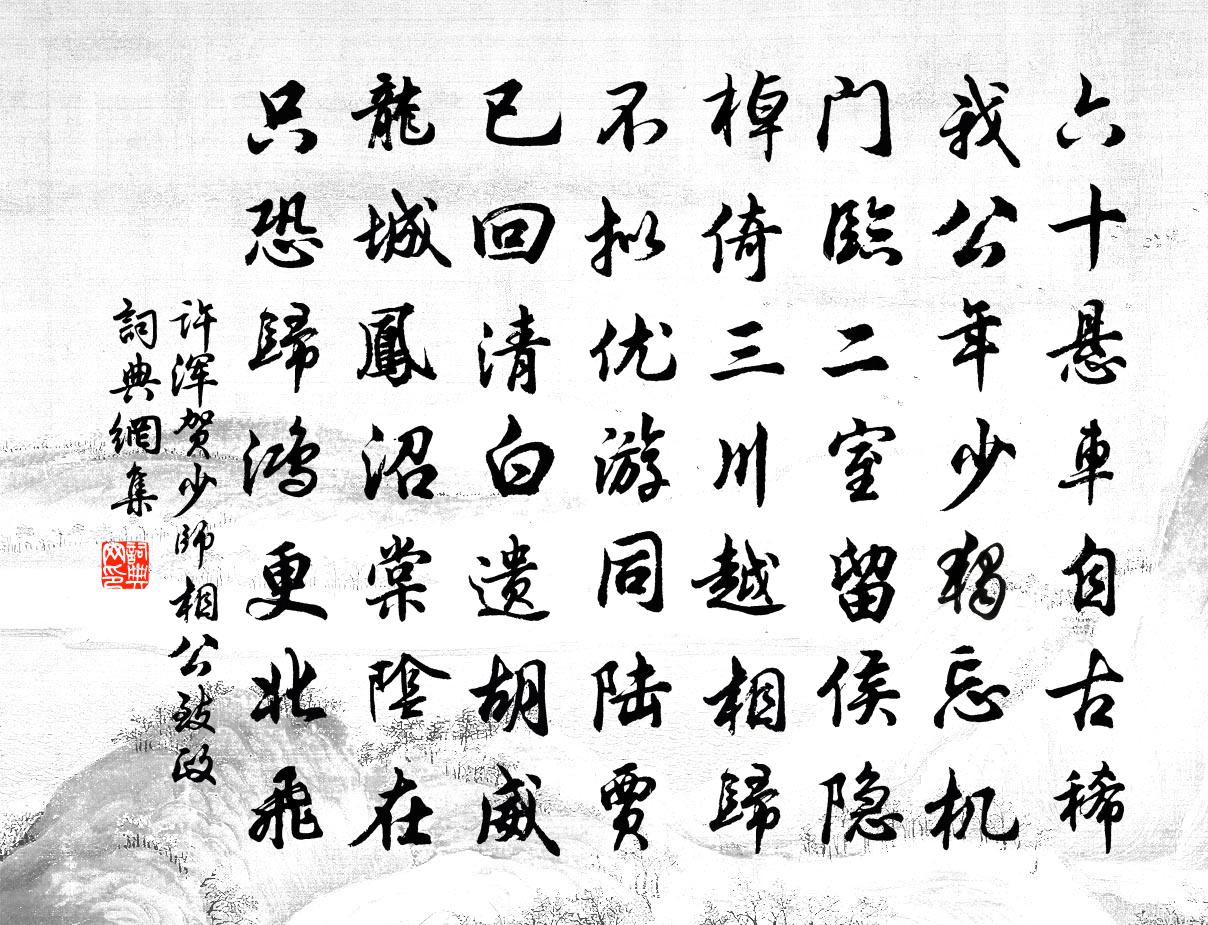 六十悬車自古稀
我公年少獨忘机
門臨二室留侯隐
棹倚三川越相歸
不拟优游同陆賈
已回清白遗胡威
龍城鳳沼棠陰在
只恐歸鴻更北飛
许浑贺少師相公致政
詞典網集
詞典网印